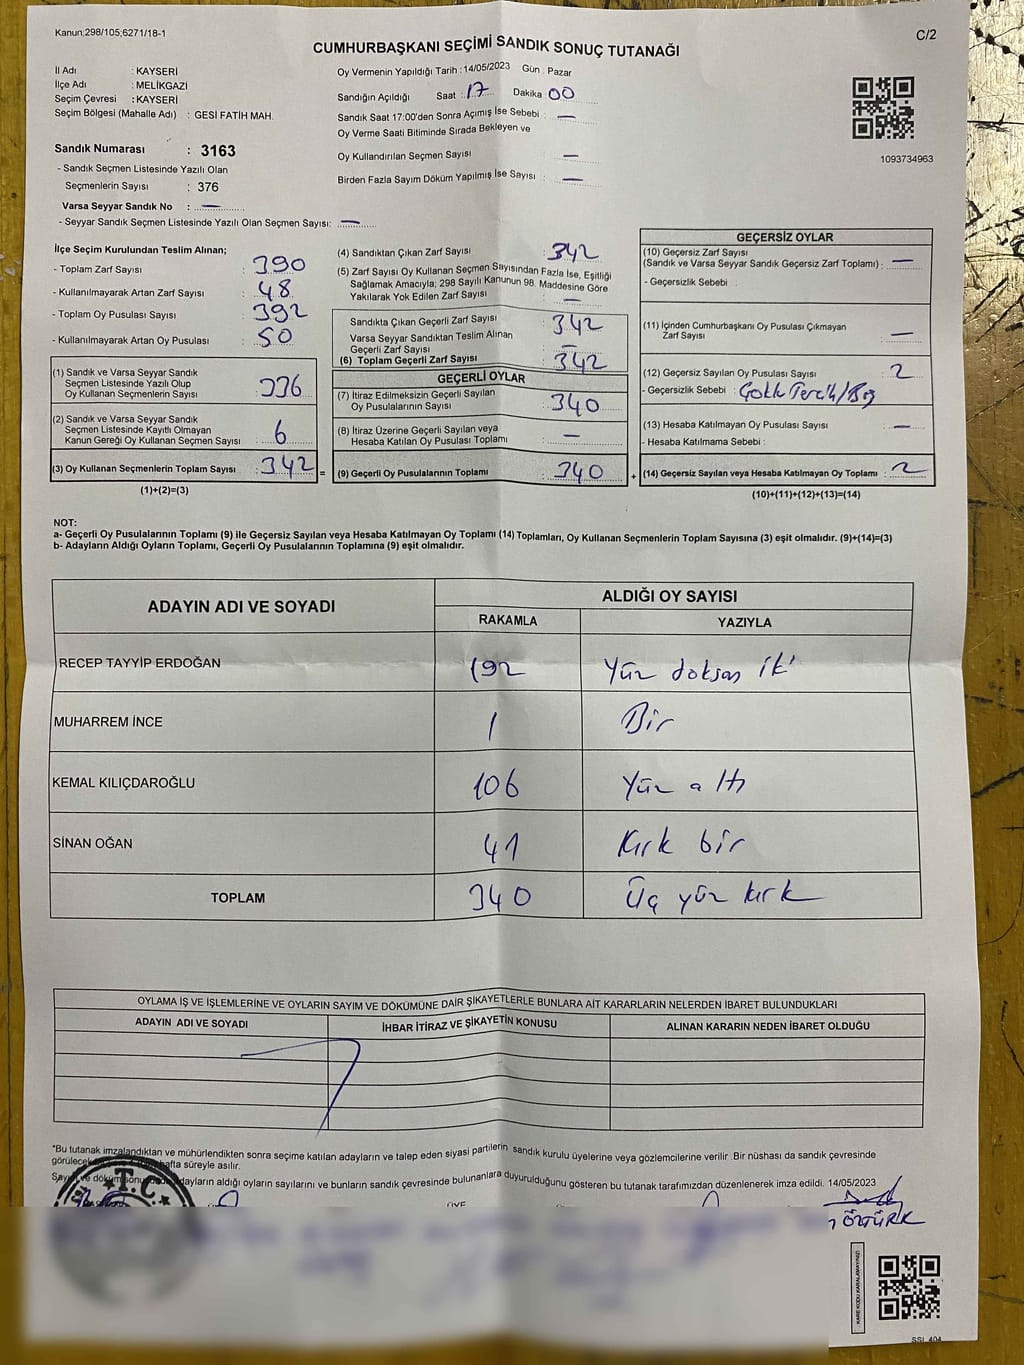 Kanun;298/105,6271/18-1
C/2
CUMHURBAŞKANI SEÇİMİ SANDIK SONUÇ TUTANAĞI
İl Adı : KAYSERİ
İlçe Adı : MELİKGAZİ
Seçim Çevresi : KAYSERİ
Seçim Bölgesi (Mahalle Adı) : GESİ FATİH MAH.
Sandık Numarası : 3163
- Sandık Seçmen Listesinde Yazılı Olan
Seçmenlerin Sayısı : 376
Varsa Seyyar Sandık No : —
- Seyyar Sandık Seçmen Listesinde Yazılı Olan Seçmen Sayısı: —
Oy Vermenin Yapıldığı Tarih : 14/05/2023 Gün : Pazar
Sandığın Açıldığı Saat : 17 Dakika 00
Sandık Saat 17:00'den Sonra Açımış İse Sebebi : —
Oy Verme Saati Bitiminde Sırada Bekleyen ve
Oy Kullandırılan Seçmen Sayısı : —
Birden Fazla Sayım Döküm Yapılmış İse Sayısı : —
1093734963
İlçe Seçim Kurulundan Teslim Alınan;
- Toplam Zarf Sayısı : 390
- Kullanılmayarak Artan Zarf Sayısı : 48
- Toplam Oy Pusulası Sayısı : 392
- Kullanılmayarak Artan Oy Pusulası : 50
(1) Sandık ve Varsa Seyyar Sandık
Seçmen Listesinde Yazılı Olup
Oy Kullanan Seçmenlerin Sayısı : 336
(2) Sandık ve Varsa Seyyar Sandık
Seçmen Listesinde Kayıtlı Olmayan
Kanun Gereği Oy Kullanan Seçmen Sayısı : 6
(3) Oy Kullanan Seçmenlerin Toplam Sayısı : 342
(1)+(2)=(3)
=
(4) Sandıktan Çıkan Zarf Sayısı : 342
(5) Zarf Sayısı Oy Kullanan Seçmen Sayısından Fazla İse, Eşitliği
Sağlamak Amacıyla; 298 Sayılı Kanunun 98. Maddesine Göre
Yakılarak Yok Edilen Zarf Sayısı : —
Sandıkta Çıkan Geçerli Zarf Sayısı : 342
Varsa Seyyar Sandıktan Teslim Alınan
Geçerli Zarf Sayısı : —
(6) Toplam Geçerli Zarf Sayısı : 342
GEÇERLİ OYLAR
(7) İtiraz Edilmeksizin Geçerli Sayılan
Oy Pusulalarının Sayısı : 340
(8) İtiraz Üzerine Geçerli Sayılan veya
Hesaba Katılan Oy Pusulası Toplamı : —
(9) Geçerli Oy Pusulalarının Toplamı : 340
+
GEÇERSİZ OYLAR
(10) Geçersiz Zarf Sayısı
(Sandık ve Varsa Seyyar Sandık Geçersiz Zarf Toplamı) : —
- Geçersizlik Sebebi :
(11) İçinden Cumhurbaşkanı Oy Pusulası Çıkmayan
Zarf Sayısı : —
(12) Geçersiz Sayılan Oy Pusulası Sayısı : 2
- Geçersizlik Sebebi : Çoklu Tercih/Boş
(13) Hesaba Katılmayan Oy Pusulası Sayısı : —
- Hesaba Katılmama Sebebi :
(14) Geçersiz Sayılan veya Hesaba Katılmayan Oy Toplamı : 2
(10)+(11)+(12)+(13)=(14)
NOT:
a- Geçerli Oy Pusulalarının Toplamı (9) ile Geçersiz Sayılan veya Hesaba Katılmayan Oy Toplamı (14) Toplamları, Oy Kullanan Seçmenlerin Toplam Sayısına (3) eşit olmalıdır. (9)+(14)=(3)
b- Adayların Aldığı Oyların Toplamı, Geçerli Oy Pusulalarının Toplamına (9) eşit olmalıdır.
ADAYIN ADI VE SOYADI ALDIĞI OY SAYISI
RAKAMLA YAZIYLA
RECEP TAYYİP ERDOĞAN 192 Yüz doksan iki
MUHARREM İNCE 1 Bir
KEMAL KILIÇDAROĞLU 106 Yüz altı
SİNAN OĞAN 41 Kırk bir
TOPLAM 340 Üç yüz kırk
OYLAMA İŞ VE İŞLEMLERİNE VE OYLARIN SAYIM VE DÖKÜMÜNE DAİR ŞİKAYETLERLE BUNLARA AİT KARARLARIN NELERDEN İBARET BULUNDUKLARI
ADAYIN ADI VE SOYADI İHBAR İTİRAZ VE ŞİKAYETİN KONUSU ALINAN KARARIN NEDEN İBARET OLDUĞU
*Bu tutanak imzalandıktan ve mühürlendikten sonra seçime katılan adayların ve talep eden siyasi partilerin sandık kurulu üyelerine veya gözlemcilerine verilir .Bir nüshası da sandık çevresinde
görülecek hafta süreyle asılır.
Sayım ve döküm sonu adayların aldığı oyların sayılarını ve bunların sandık çevresinde bulunanlara duyurulduğunu gösteren bu tutanak tarafımızdan düzenlenerek imza edildi. 14/05/2023
T.C.
ÜYE
ÖZTÜRK
KARE KODU KARALAMAYINIZ!
SSI 404